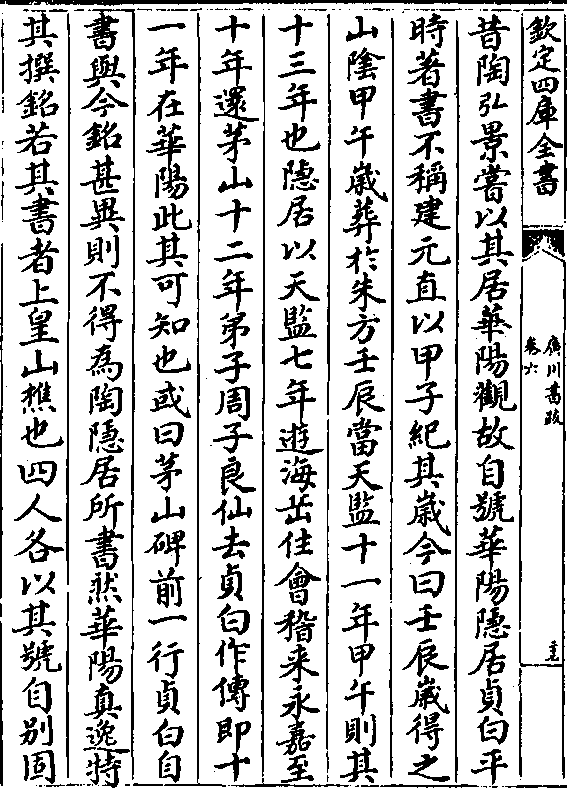 欽定四庫全書
廣川書跋
卷六
昔陶弘景嘗以其居華陽觀故自號華陽隱居貞白平
時著書不稱建元直以甲子紀其歲今曰壬辰歲得之
山陰甲午歲葬於朱方壬辰當天監十一年甲午則其
十三年也隱居以天監七年遊海岳住會稽来永嘉至
十年還茅山十二年弟子周子良仙去貞白作傳即十
一年在華陽此其可知也或曰茅山碑前一行貞白自
書與今銘甚異則不得為陶隱居所書然華陽真逸特
其撰銘若其書者上皇山樵也四人各以其號自别固